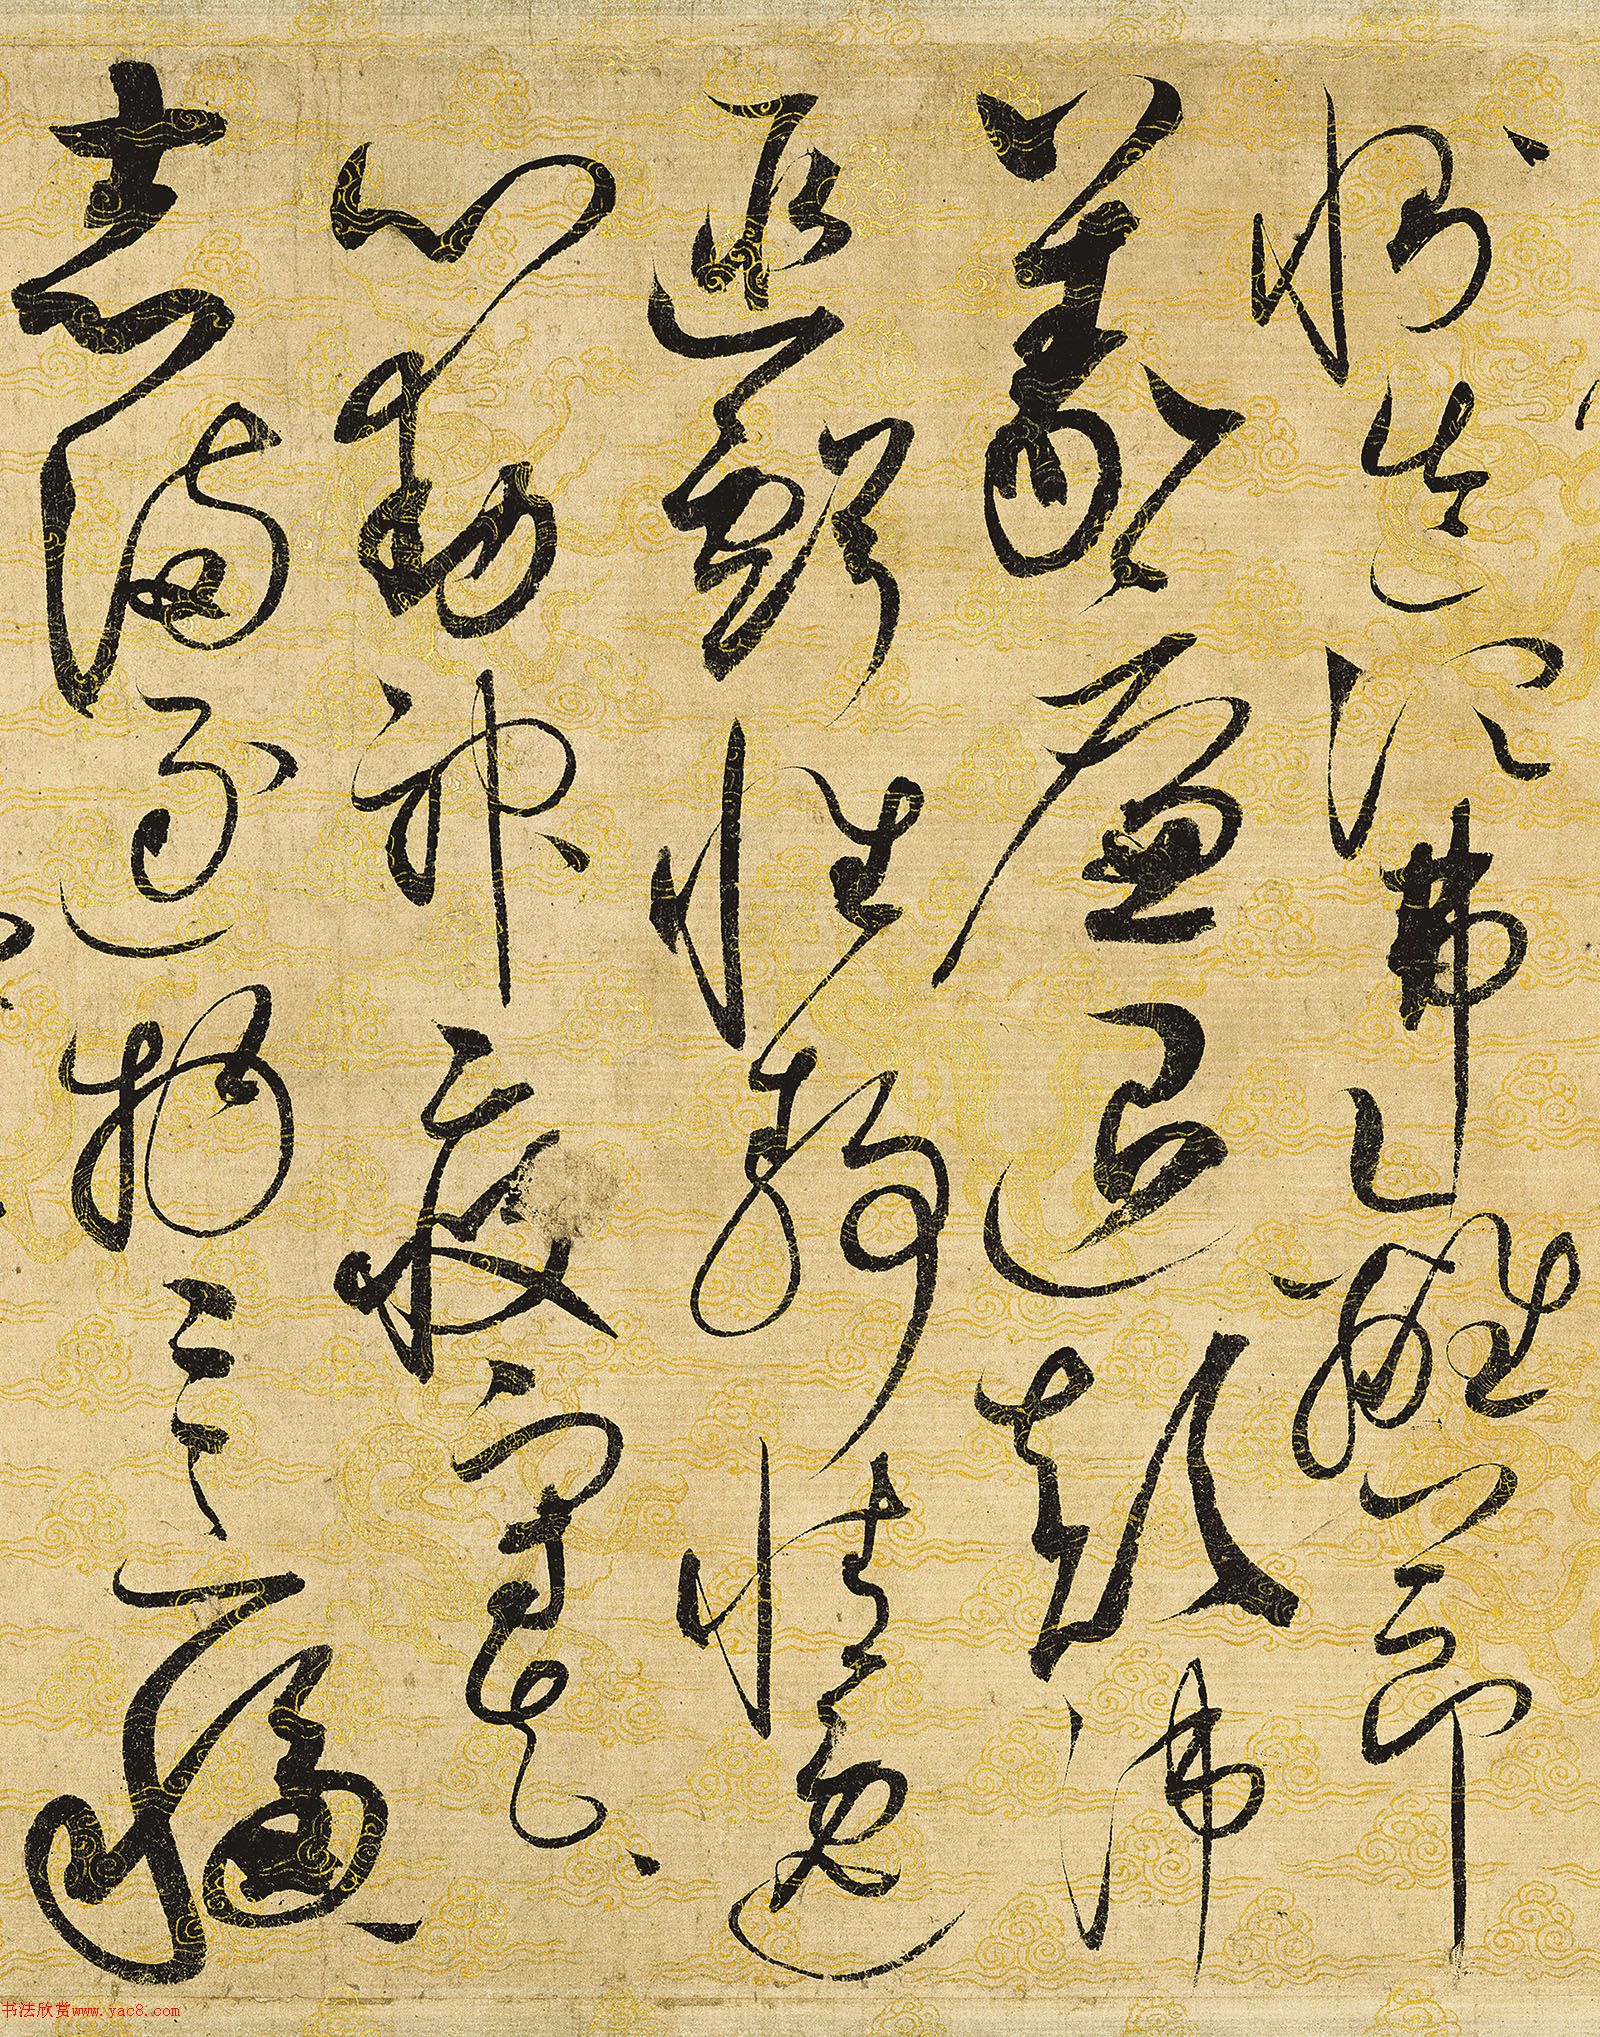 惻造次弗離節
義廉退顛沛
匪虧性靜情逸
心動神疲守真
志滿逐物意移
书法欣赏www.yac8.com